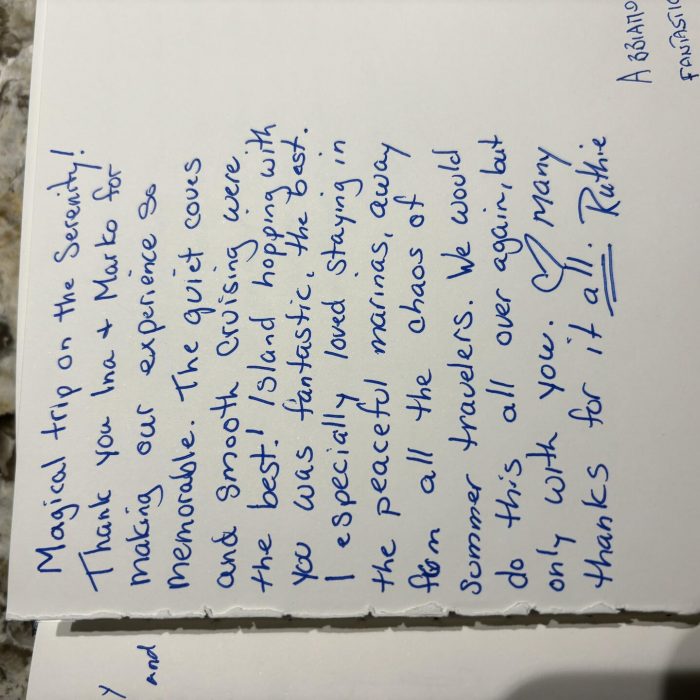 Magical trip on the Serenity!
Thank you Ina + Marko for
making our experience so
memorable. The quiet coves
and smooth cruising were
the best! Island hopping with
you was fantastic, the best.
I especially loved staying in
the peaceful marinas, away
from all the chaos of
summer travelers. We would
do this all over again, but
only with you. ♡ Many
thanks for it all. Ruthie
ABBIAMO
FANTASTIC
y
and